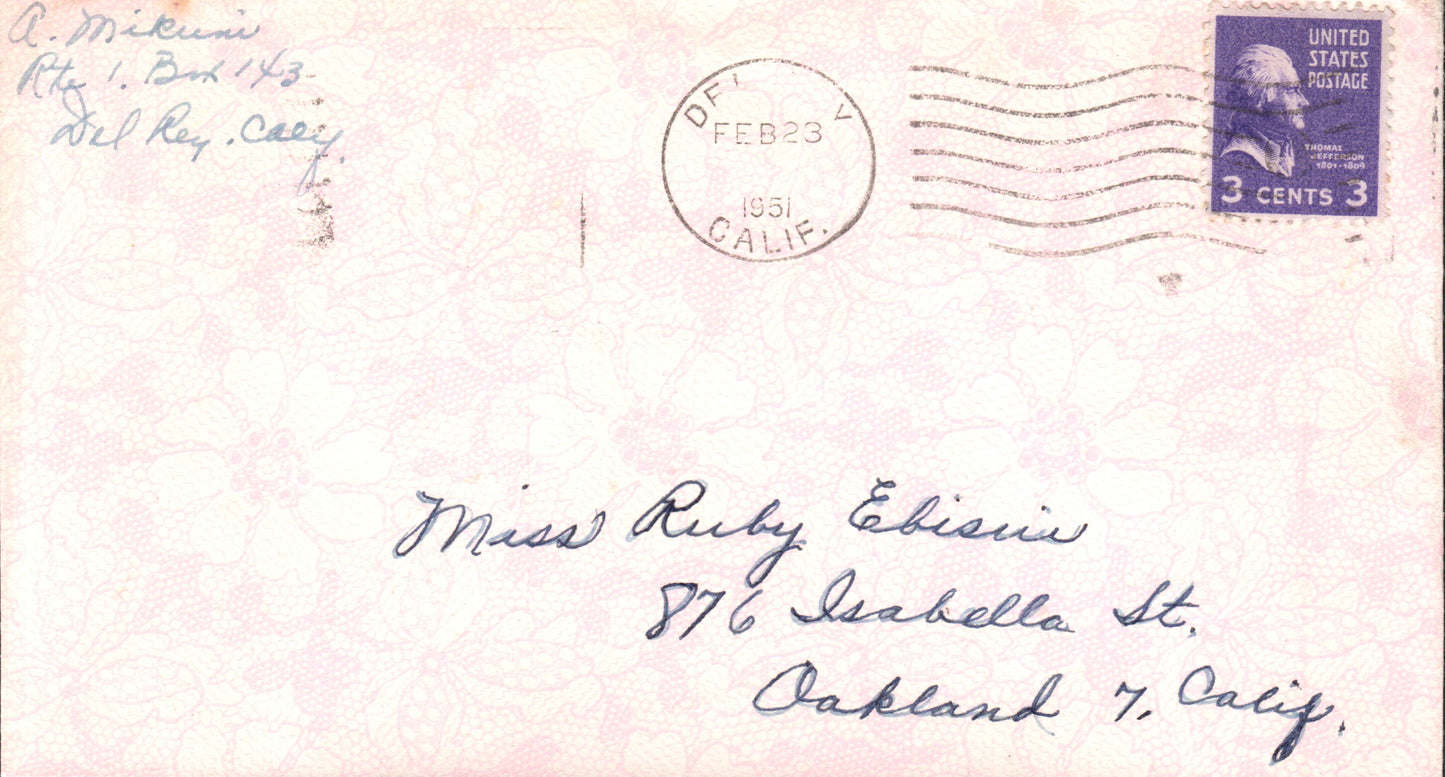 A. Mikuni
Rte 1. Box 143
Del Rey. Calif.
FEB 23
1951
CALIF.
UNITED
STATES
POSTAGE
THOMAS
JEFFERSON
1801-1809
3 CENTS 3
Miss Ruby Ebisui
876 Isabella St.
Oakland 7, Calif.